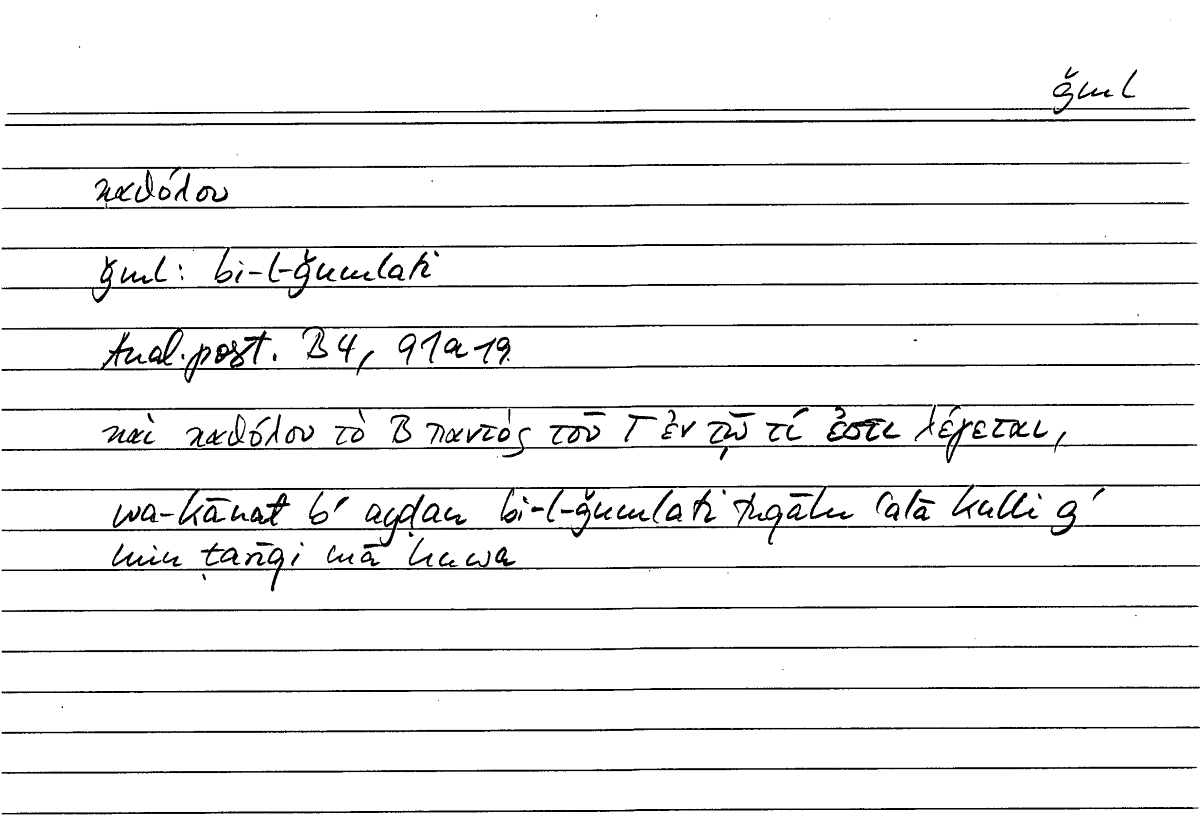 ǧml
καθόλου
ǧml: bi-l-ǧumlati
Anal. post. B 4, 91a19
καὶ καθόλου τὸ B παντὸς τοῦ Γ ἐν τῷ τί ἐστι λέγεται,
wa-kānat b' ayḍan bi-l-ǧumlati tuqālu ʿalā kulli ǧ'
min ṭarīqi mā huwa